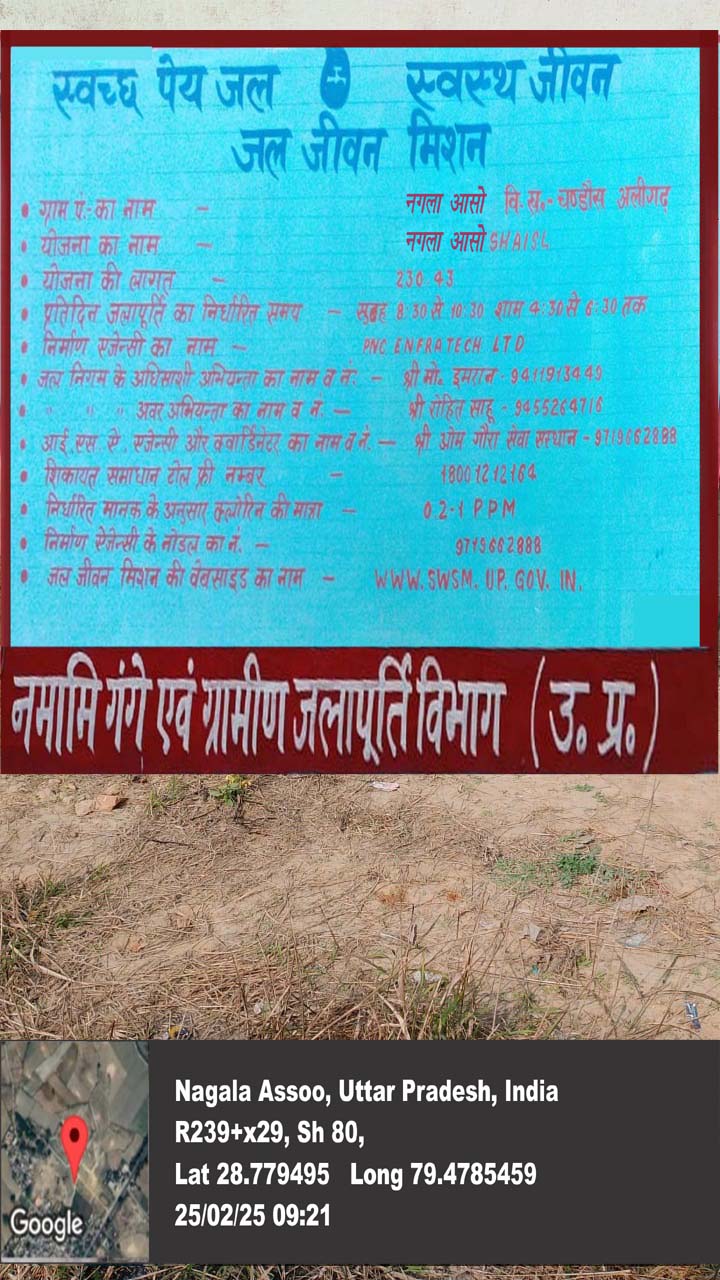 स्वच्छ पेय जल स्वस्थ जीवन
जल जीवन मिशन
• ग्राम पं.- का नाम – नगला आसो वि.ख.- चण्डौस अलीगढ
• योजना का नाम – नगला आसो SHAISL
• योजना की लागत – 230.43
• प्रतिदिन जलापूर्ति का निर्धारित समय – सुबह 8:30 से 10:30 शाम 4:30 से 6:30 तक
• निर्माण एजेन्सी का नाम – PNC ENFRATECH LTD
• जल निगम के अधिसाशी अभियन्ता का नाम व नं. – श्री मो. इमरान - 9411913449
• " " " अवर अभियन्ता का नाम व नं. – श्री रोहित साहू - 9455264716
• आई.एस.ऐ. एजेन्सी और क्वार्डिनेटर का नाम व नं. – श्री ओम गौरा सेवा सस्थान - 9719662888
• शिकायत समाधान टोल फ्री नम्बर – 18001212164
• निर्धारित मानक के अनुसार क्लोरिन की मात्रा – 0.2-1 PPM
• निर्माण ऐजेन्सी के नोडल का नं. – 9719662888
• जल जीवन मिशन की वेबसाइड का नाम – WWW.SWSM.UP.GOV.IN.
नमामि गंगे एवं ग्रामीण जलापूर्ति विभाग (उ. प्र.)
Nagala Assoo, Uttar Pradesh, India
R239+x29, Sh 80,
Lat 28.779495 Long 79.4785459
25/02/25 09:21
Google